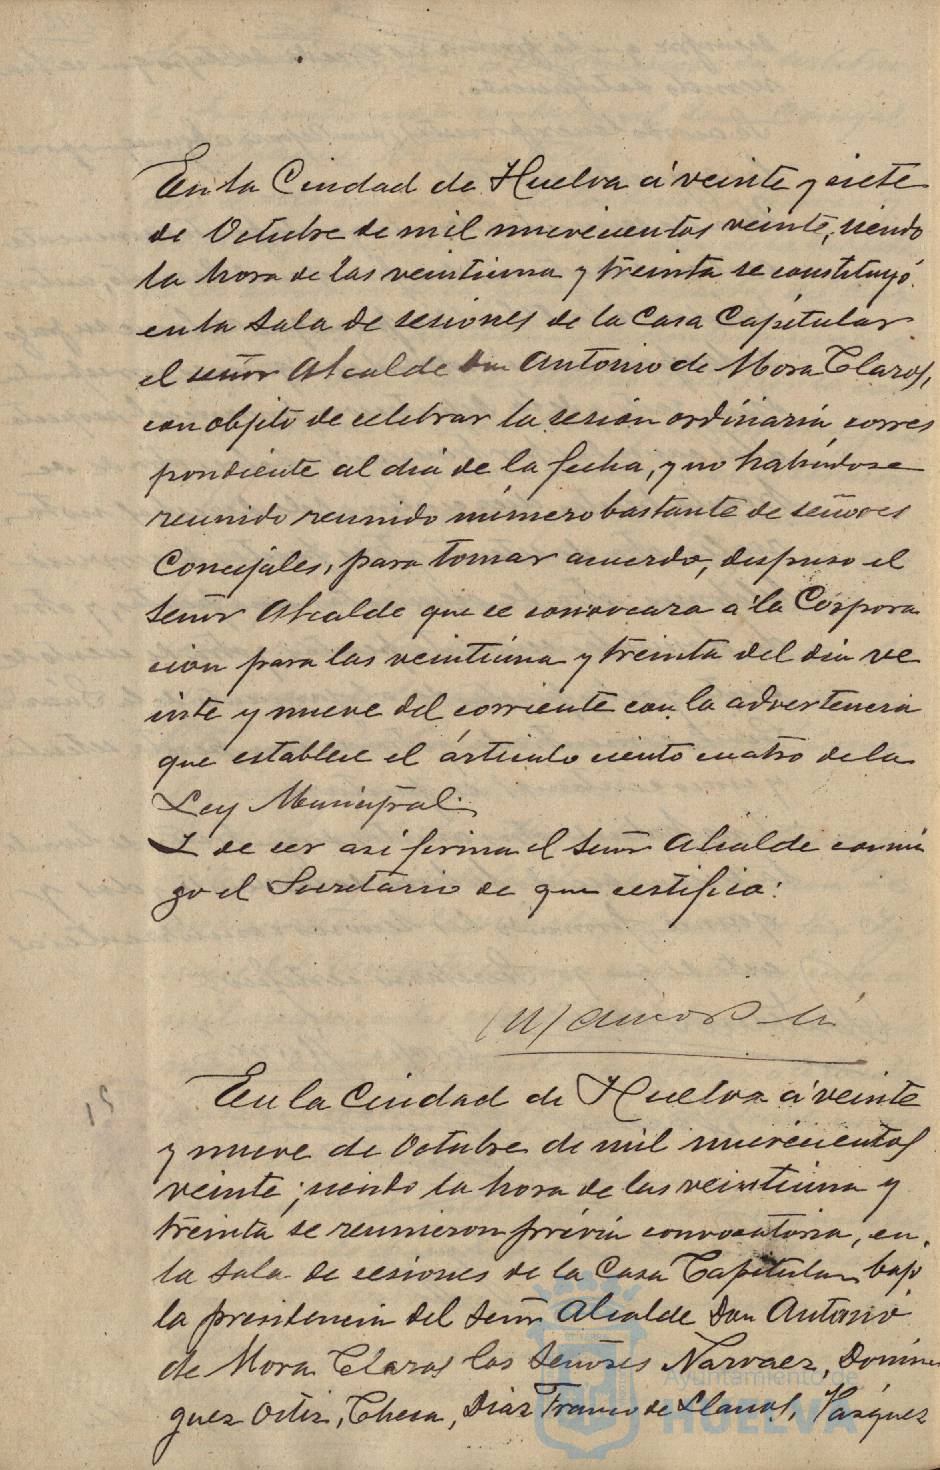 En la Ciudad de Huelva á veinte y siete
de Octubre de mil nuevecientos veinte, siendo
la hora de las veintiuna y treinta se constituyó
en la Sala de sesiones de la Casa Capitular
el señor Alcalde Don Antonio de Mora Claros,
con objeto de celebrar la sesión ordinaria corres
pondiente al dia de la fecha, y no habiéndose
reunido reunido número bastante de señores
Concejales, para tomar acuerdo, dispuso el
Señor Alcalde que se convocara a la Corpora
cion para las veintiuna y treinta del dia ve
inte y nueve del corriente con la advertencia
que establece el artículo ciento cuatro de la
Ley Municipal.
Y de ser así firma el Señor Alcalde conmi
go el Secretario de que certifico:
En la Ciudad de Huelva á veinte
y nueve de Octubre de mil nuevecientos
veinte; siendo la hora de las veintiuna y
treinta se reunieron prévia convocatoria, en
la Sala de sesiones de la Casa Capitular, bajo
la presidencia del Señor Alcalde Don Antonio
de Mora Claros los Señores Narvaez, Domín
guez Ortiz, Checa, Diaz Franco de Llanos, Vázquez
Ayuntamiento de
HUELVA